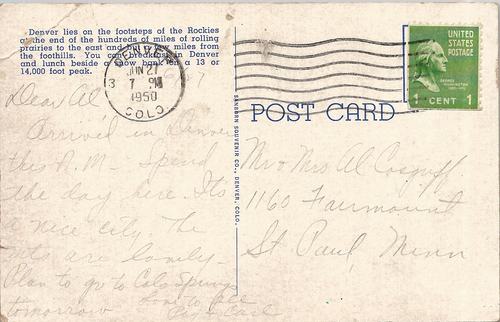 Denver lies on the footsteps of the Rockies
at the end of the hundreds of miles of rolling
prairies to the east and but a few miles from
the foothills. You can breakfast in Denver
and lunch beside a snow bank on a 13 or
14,000 foot peak.
DENVER
JUN 27
3 7 PM
1950
COLO.
UNITED
STATES
POSTAGE
GEORGE
WASHINGTON
1 CENT 1
POST CARD
SANBORN SOUVENIR CO., DENVER, COLO.
Dear Al
Arriv'd in Denver
this A.M. Spend
the day here. Its
a nice city. The
mts are lovely.
Plan to go to Colo Springs
tomorrow
Love to all
Carl
Mr & Mrs Al
1160 Fairmount
St Paul, Minn